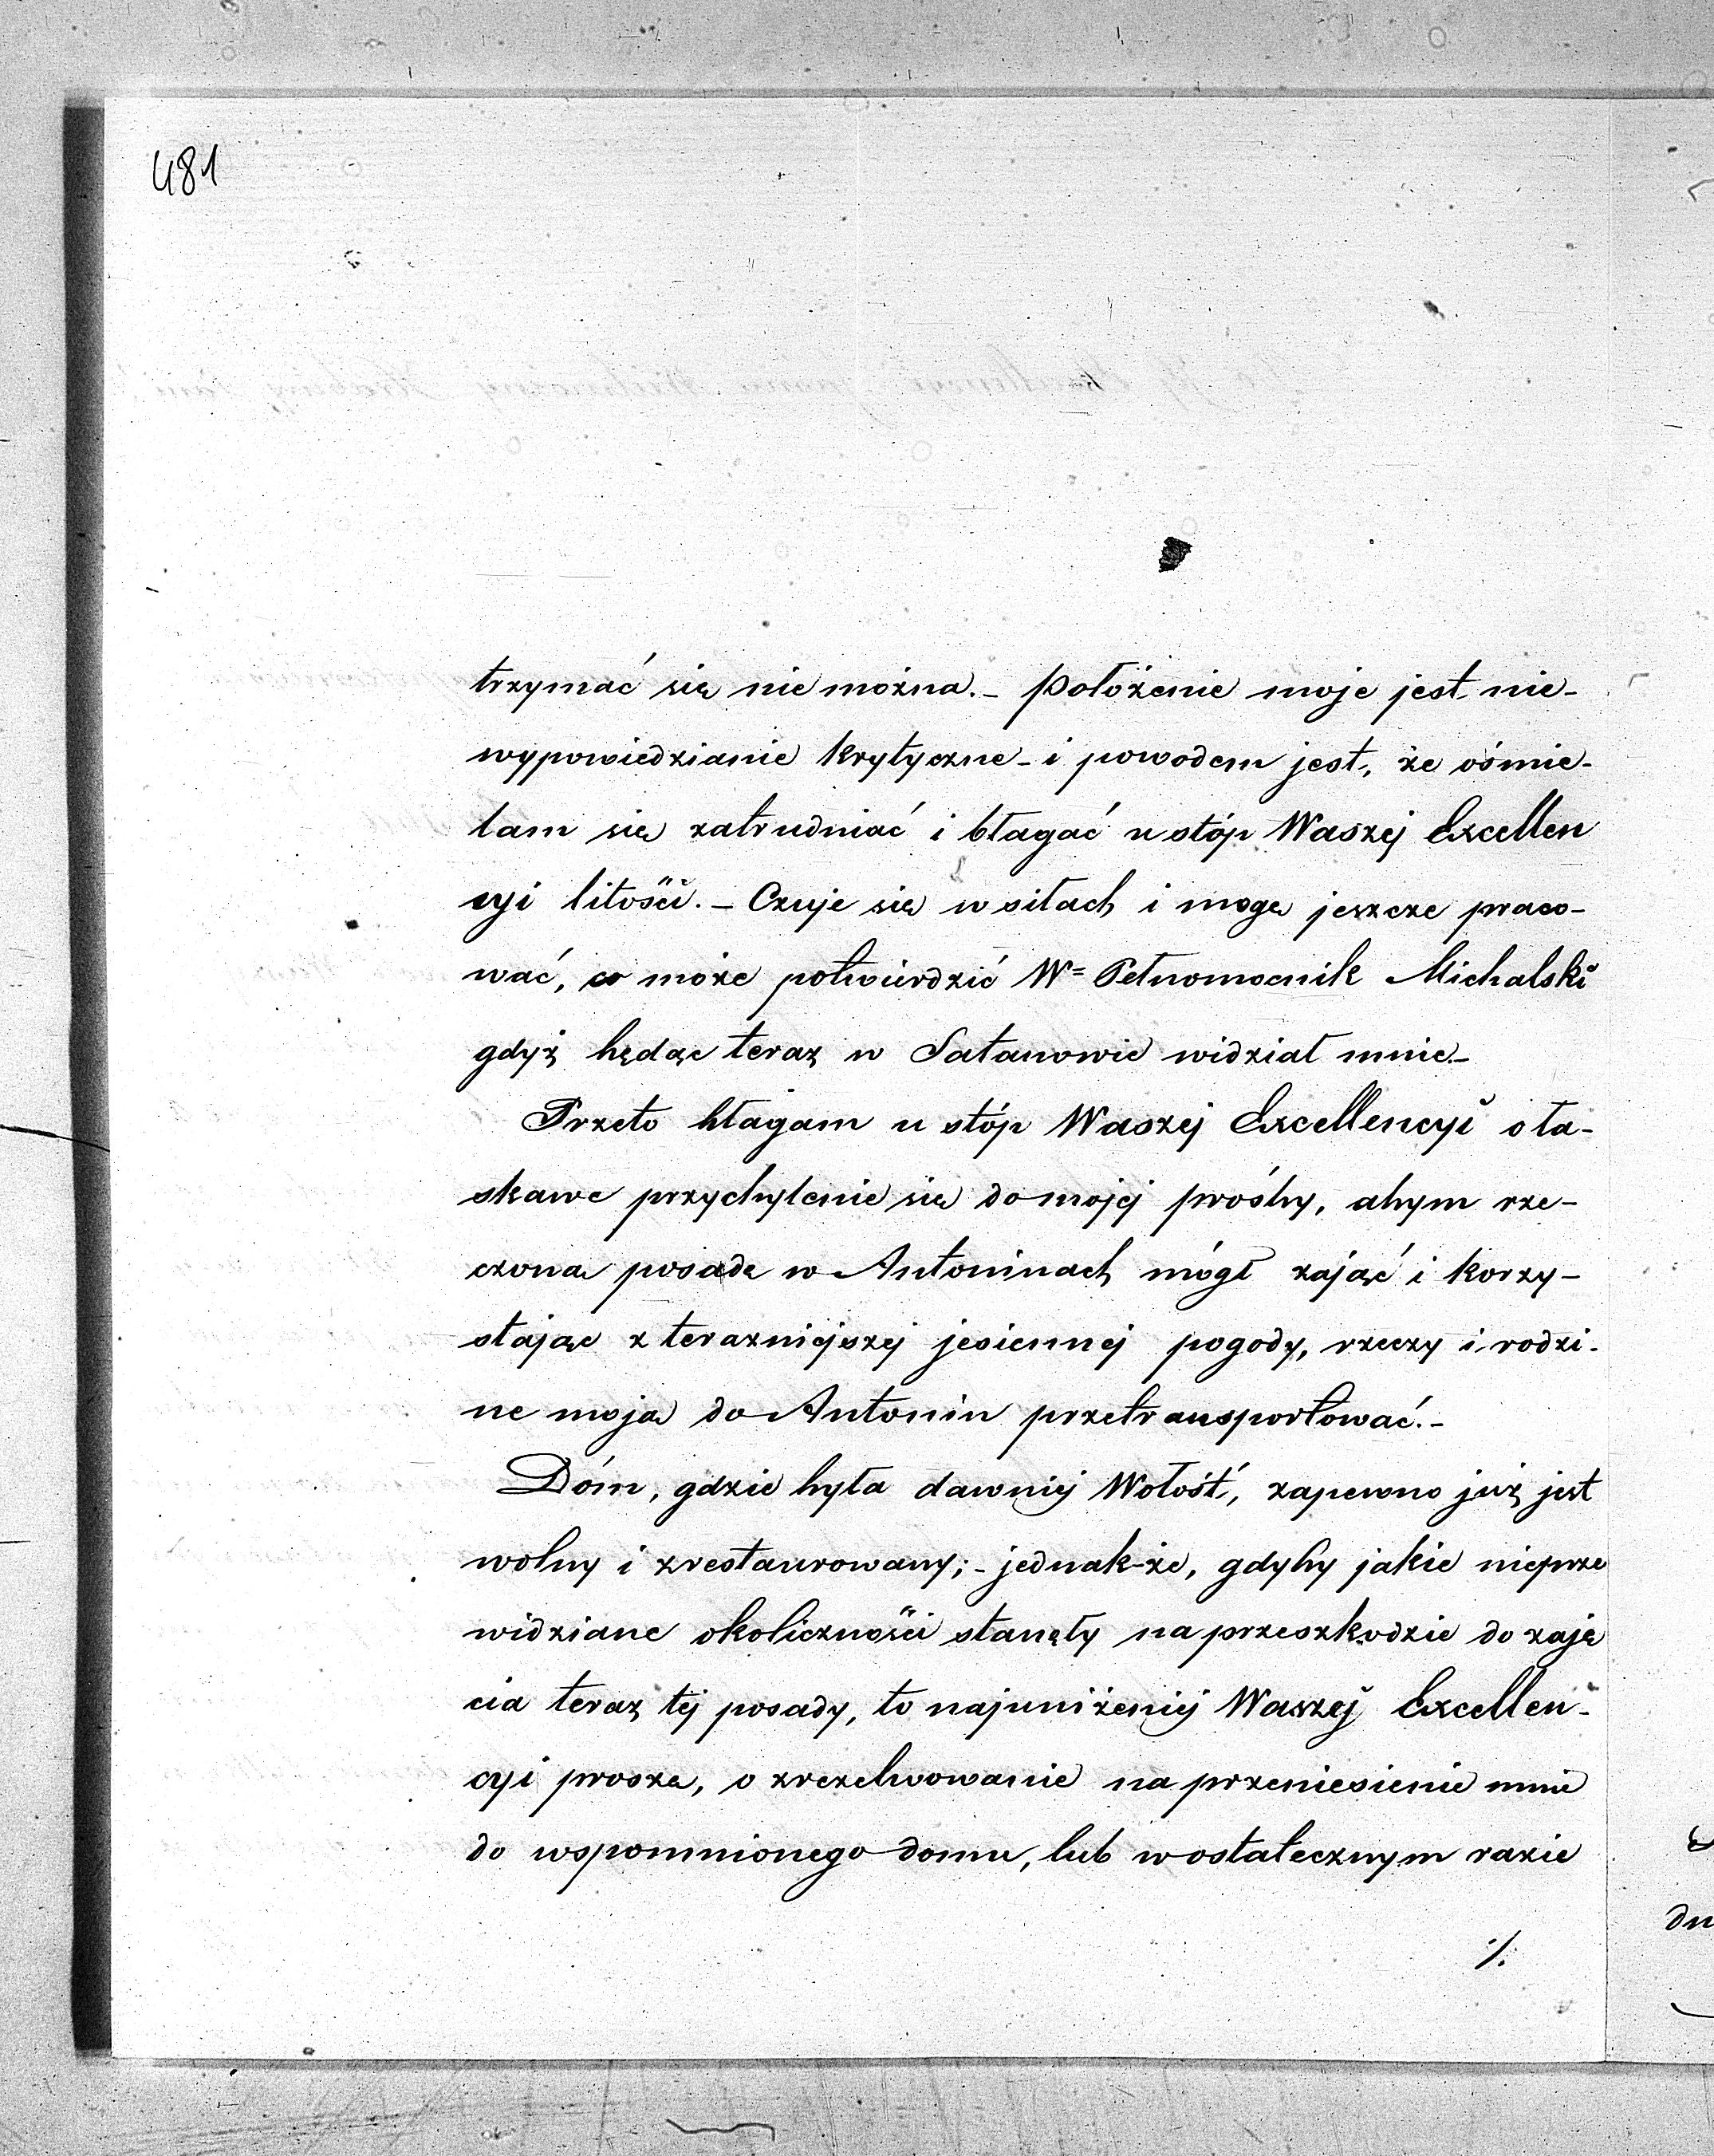 481
trzymać się nie można. – Położenie moje jest nie-
wypowiedzianie krytyczne – i powodem jest, że ośmie-
lam się zatrudniać i błagać u stóp Waszej Excellen
cyi litości. – Czuje się w siłach i mogę jeszcze praco-
wać, co może potwierdzić W= Pełnomocnik Michalski
gdyż będąc teraz w Satanowie widział mnie. –
Przeto błagam u stóp Waszej Excellencyi o ła-
skawe przychylenie się do mojej prośby, abym rze-
czoną posadę w Antoninach mógł zająć i korzy-
stając z terazniejszej jesiennej pogody, rzeczy i rodzi-
nę moją do Antonin przetransportować. –
Dóm, gdzie była dawniej Wołość, zapewno już jest
wolny i zrestaurowany; – jednak-że, gdyby jakie nieprze
widziane okoliczności stanęły na przeszkodzie do zaję
cia teraz tej posady, to najuniżeniej Waszej Excellen-
cyi proszę, o zrezelwowanie na przeniesienie mnie
do wspomnionego domu, lub w ostatecznym razie
./.
dn